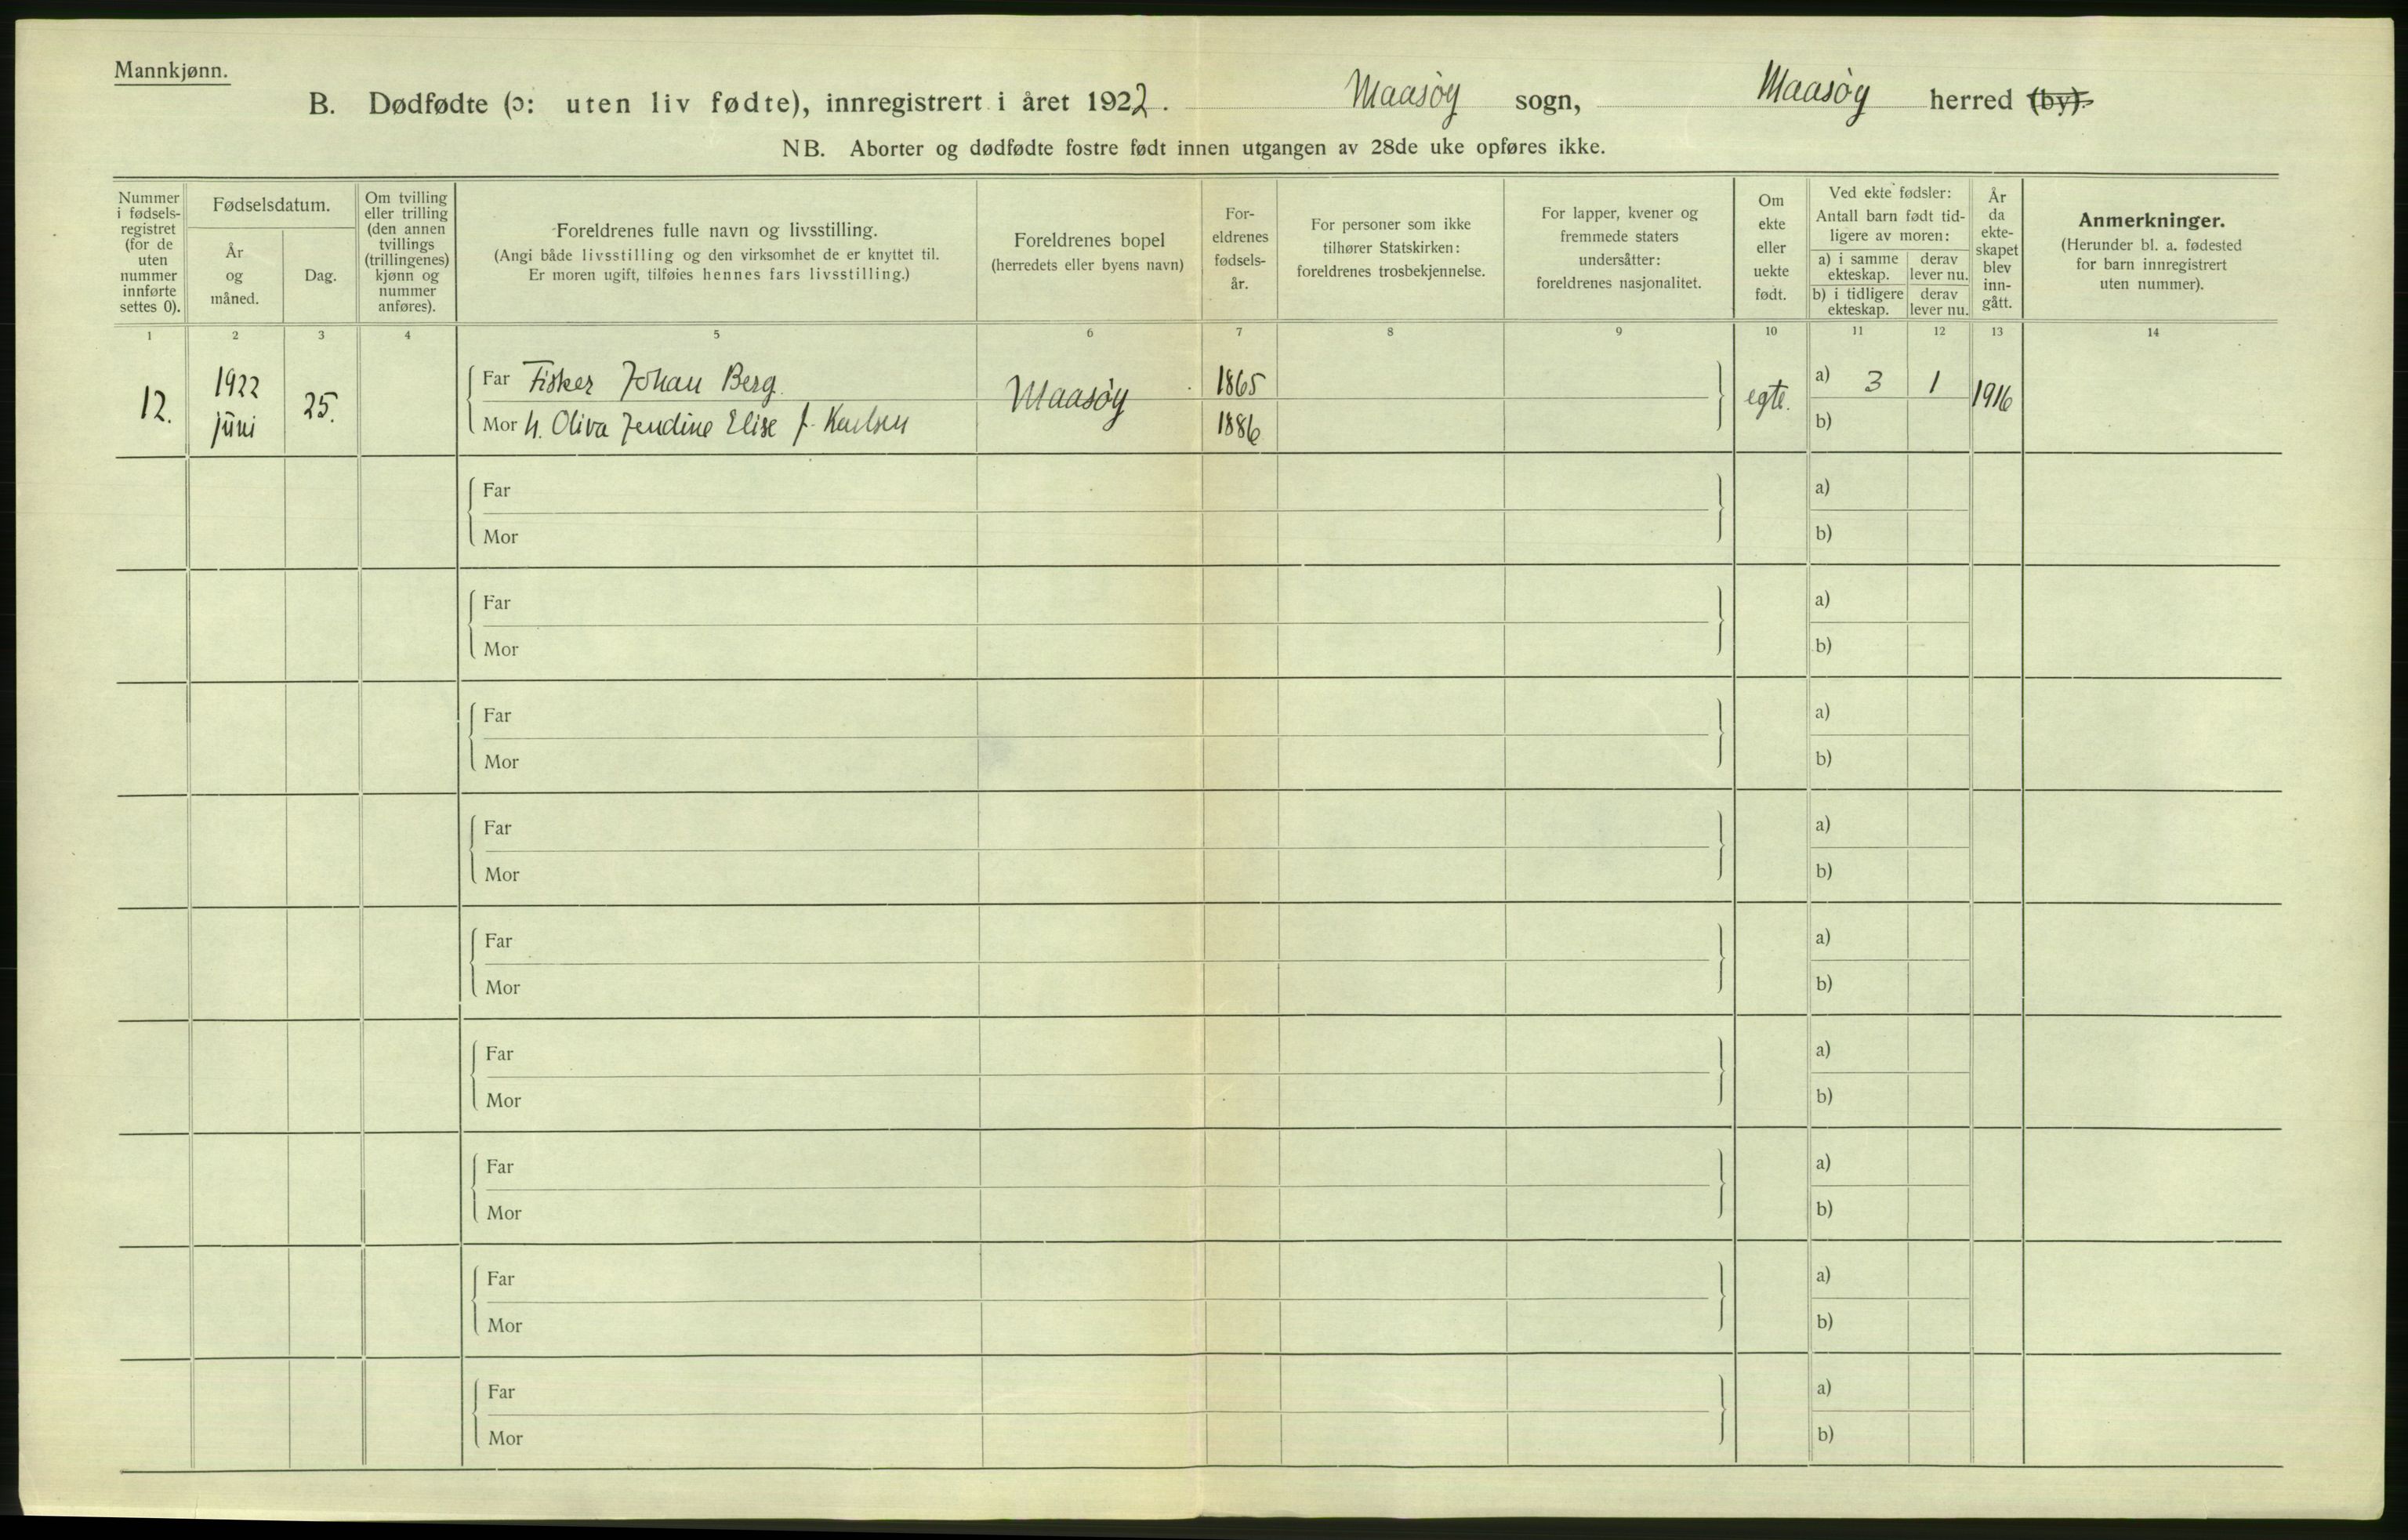 Mannkjønn.
B. Dødfødte (ɔ: uten liv fødte), innregistrert i året 1922. Maasøy sogn, Maasøy herred (by).
NB. Aborter og dødfødte fostre født innen utgangen av 28de uke opføres ikke.
Nummer
i fødsels-
registret
(for de
uten
nummer
innførte
settes 0).
Fødselsdatum.
År
og
måned.
Dag.
Om tvilling
eller trilling
(den annen
tvillings
(trillingenes)
kjønn og
nummer
anføres).
Foreldrenes fulle navn og livsstilling.
(Angi både livsstilling og den virksomhet de er knyttet til.
Er moren ugift, tilføies hennes fars livsstilling.)
Foreldrenes bopel
(herredets eller byens navn)
For-
eldrenes
fødsels-
år.
For personer som ikke
tilhører Statskirken:
foreldrenes trosbekjennelse.
For lapper, kvener og
fremmede staters
undersåtter:
foreldrenes nasjonalitet.
Om
ekte
eller
uekte
født.
Ved ekte fødsler:
Antall barn født tid-
ligere av moren:
a) i samme
ekteskap.
derav
lever nu.
b) i tidligere
ekteskap.
derav
lever nu.
År
da
ekte-
skapet
blev
inn-
gått.
Anmerkninger.
(Herunder bl. a. fødested
for barn innregistrert
uten nummer).
1 2 3 4 5 6 7 8 9 10 11 12 13 14
12. 1922 juni 25. Far Fisker Johan Berg. Maasøy 1865 egte. a) 3 1 1916
Mor h. Oliva Jendine Elise f. Karlsen 1886 b)
Far a)
Mor b)
Far a)
Mor b)
Far a)
Mor b)
Far a)
Mor b)
Far a)
Mor b)
Far a)
Mor b)
Far a)
Mor b)
Far a)
Mor b)
Far a)
Mor b)